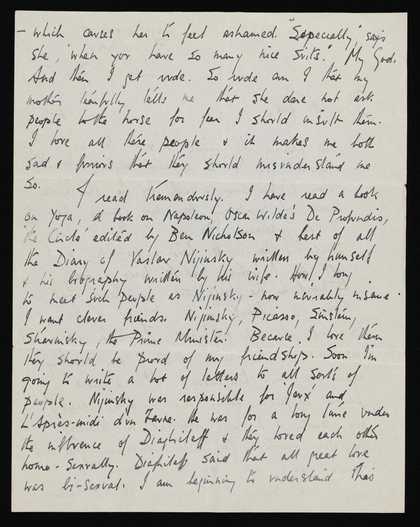 - which causes her to feel ashamed. "Especially", says
she, "when you have so many nice suits". My God.
And then I get rude. So rude am I that my
mother tearfully tells me that she dare not ask
people to the house for fear I should insult them.
I love all these people & it makes me both
sad & furious that they should misunderstand me
so.
I read tremendously. I have read a book
on Yoga, a book on Napoleon, Oscar Wilde's De Profundis,
'the Circle' edited by Ben Nicholson & best of all
the Diary of Vaslav Nijinsky written by himself
& his biography written by his wife. How I long
to meet such people as Nijinsky - now incurably insane.
I want clever friends. Nijinsky, Picasso, Einstein,
Stravinsky, the Prime Minister. Because I love them
they should be proud of my friendship. Soon I'm
going to write a lot of letters to all sorts of
people. Nijinsky was responsible for Jeux and
L'Après-midi d'un Faune. He was for a long time under
the influence of Diaghileff & they loved each other
homo-sexually. Diaghileff said that all great love
was bi-sexual. I am beginning to understand this